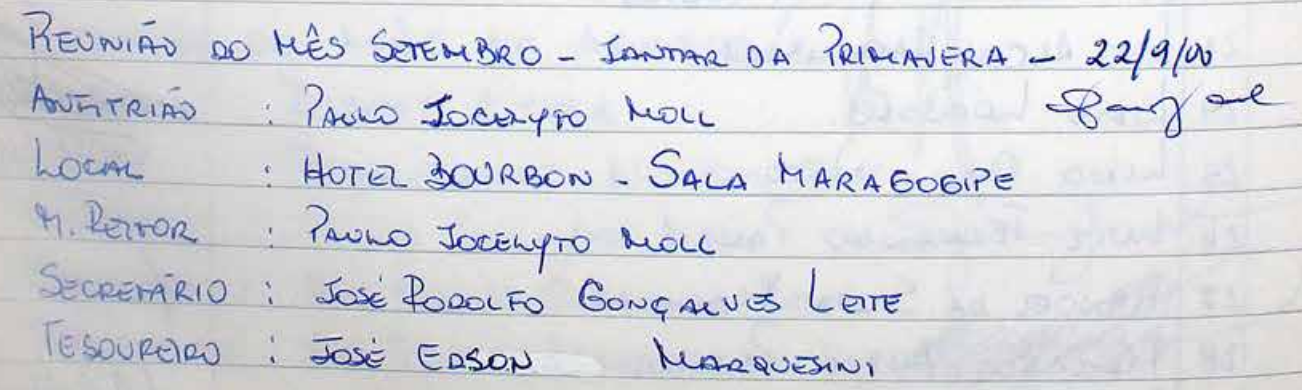 REUNIÃO DO MÊS SETEMBRO - JANTAR DA PRIMAVERA - 22/9/00
ANFITRIÃO : PAULO JOCELYTO MOLL
LOCAL : HOTEL BOURBON - SALA MARAGOGIPE
M. REITOR : PAULO JOCELYTO MOLL
SECRETÁRIO : JOSÉ RODOLFO GONÇALVES LEITE
TESOUREIRO : JOSÉ EDSON MARQUESINI